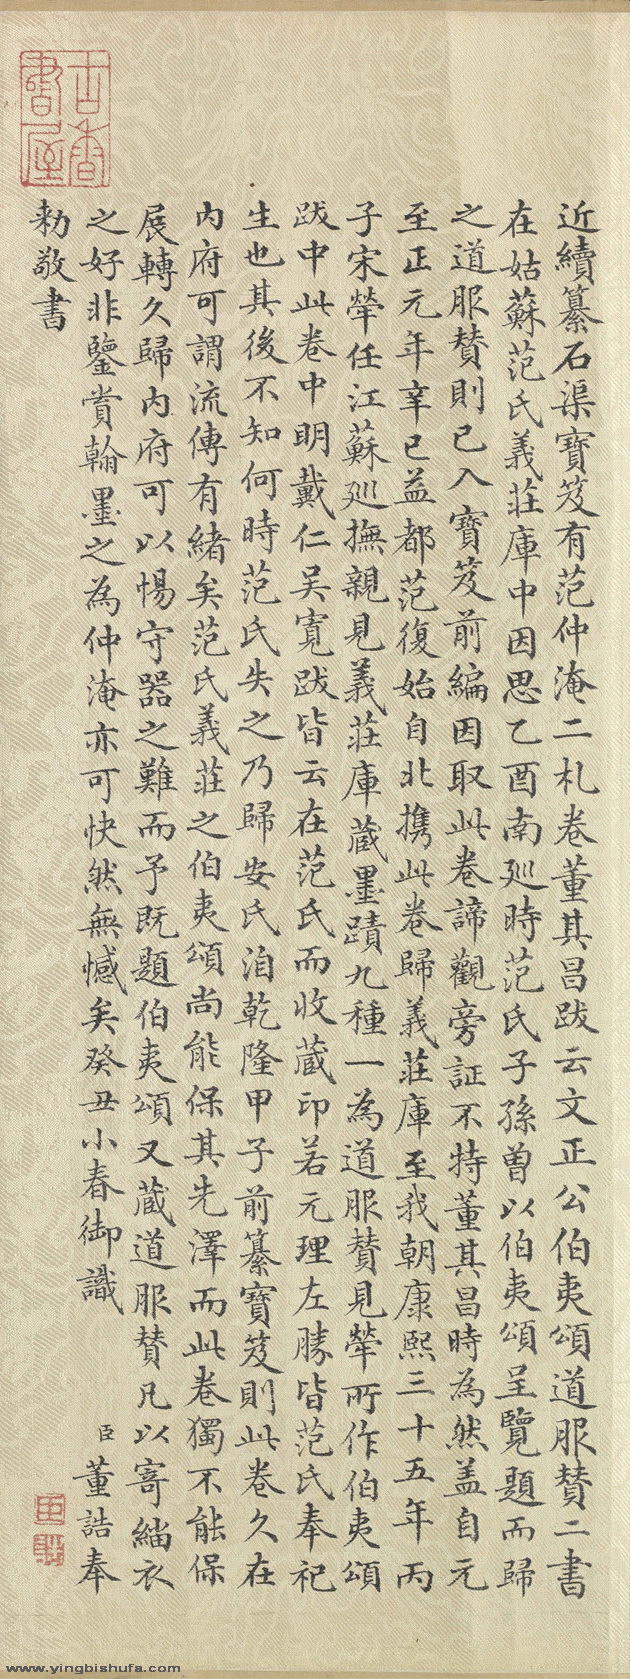 近續纂石渠寶笈有范仲淹二札卷董其昌跋云文正公伯夷頌道服賛二書
在姑蘇范氏義莊庫中因思乙酉南廵時范氏子孫曾以伯夷頌呈覽題而歸
之道服賛則已入寶笈前編因取此卷諦觀旁証不特董其昌時為然盖自元
至正元年辛巳益都范復始自北携此卷歸義莊庫至我朝康熙三十五年丙
子宋犖任江蘇廵撫親見義莊庫蔵墨蹟九種一為道服賛見犖所作伯夷頌
跋中此卷中明戴仁吴寛跋皆云在范氏而收蔵印若元理左勝皆范氏奉祀
生也其後不知何時范氏失之乃歸安氏洎乾隆甲子前纂寶笈則此卷久在
内府可謂流傳有緒矣范氏義莊之伯夷頌尚能保其先澤而此卷獨不能保
展轉久歸内府可以惕守器之難而予既題伯夷頌又蔵道服賛凡以寄緇衣
之好非鑒賞翰墨之為仲淹亦可快然無憾矣癸丑小春御識
臣董誥奉
勅敬書
古香書屋
臣
www.yingbishufa.com